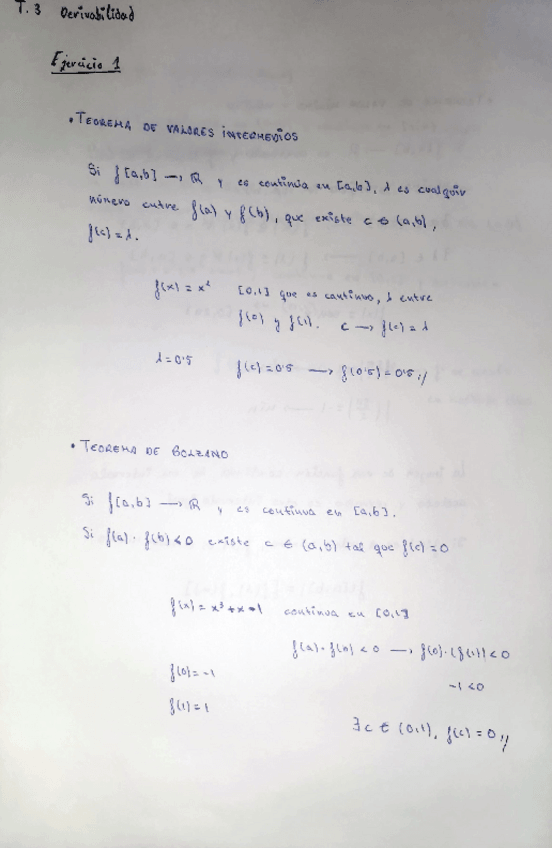 T.3 Derivabilidad
Ejercicio 1
• TEOREMA DE VALORES INTERMEDIOS
Si f[a,b] → ℝ y es continua en [a,b], λ es cualquier
número entre f(a) y f(b), que existe c ∈ (a,b),
f(c) = λ.
f(x) = x² [0,1] que es continuo, λ entre
f(0) y f(1). c → f(c) = λ
λ = 0'5 f(c) = 0'5 → f(0'5) = 0'5 //
• TEOREMA DE BOLZANO
Si f[a,b] → ℝ y es continua en [a,b].
Si f(a) · f(b) < 0 existe c ∈ (a,b) tal que f(c) = 0
f(x) = x³ + x - 1 continua en [0,1]
f(a) · f(b) < 0 → f(0) · (f(1)) < 0
f(0) = -1
-1 < 0
f(1) = 1
∃c ∈ (0,1), f(c) = 0 //